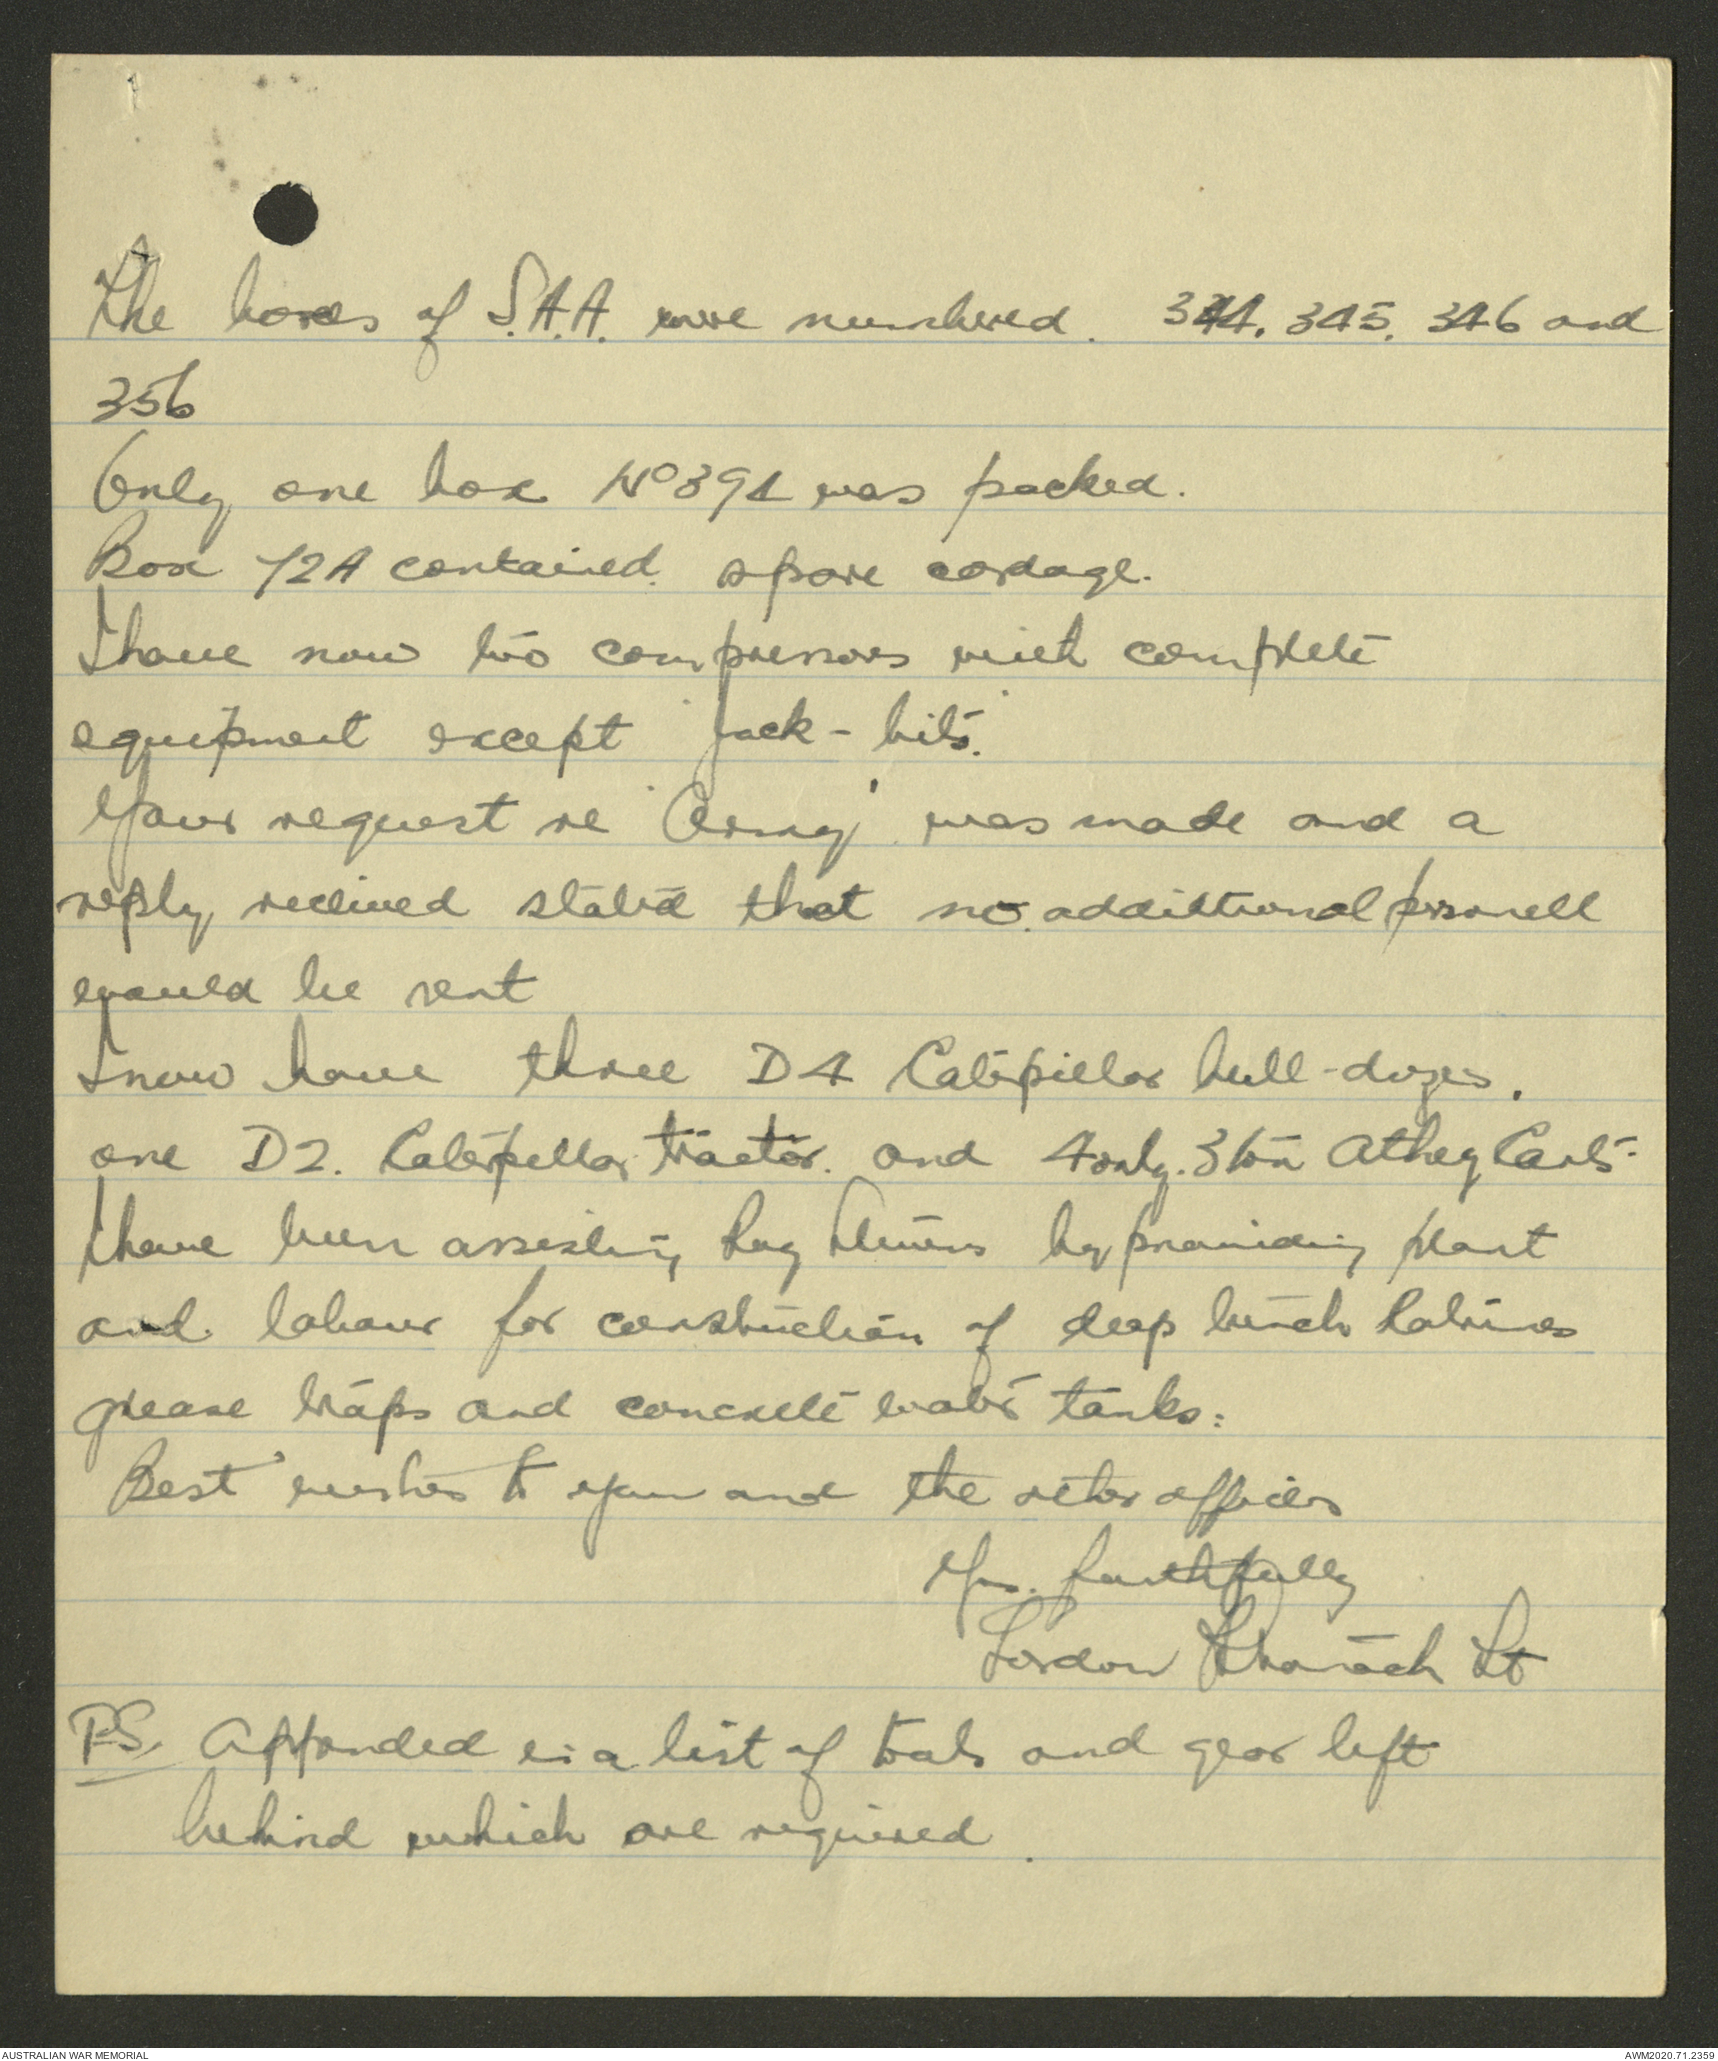 The boxes of S.A.A. were numbered. 344. 345. 346 and
356
Only one box No 391 was packed.
Box 72A contained spare cordage.
I have now two compressors with complete
equipment except "Jack-bits".
Your request re "Army" was made and a
reply recieved stated that no additional personell
would be sent
I now have three D4 Caterpillar bull-dozers.
one D2. Caterpillar tractor. and 4 only. 3 ton Athey Carts.
I have been assisting by providing plant
and labour for construction of deep trench Latrines
grease traps and concrete water tanks:
Best wishes to you and the other officers
Yrs. faithfully
Gordon Lt
P.S. Appended is a list of tools and gear left
behind which are required.
AUSTRALIAN WAR MEMORIAL
AWM2020.71.2359